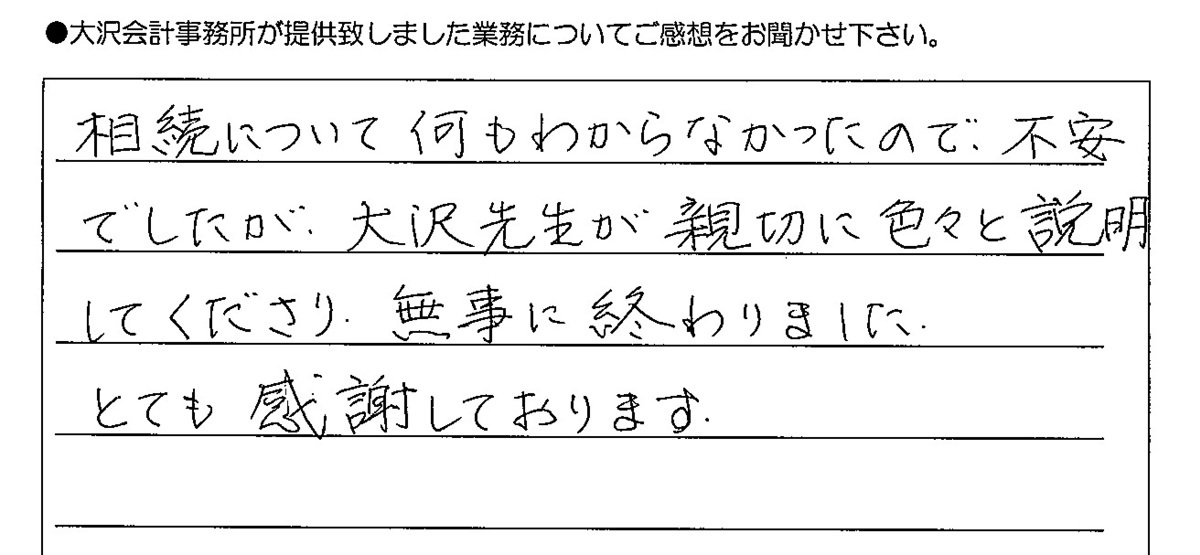 ●大沢会計事務所が提供致しました業務についてご感想をお聞かせ下さい。
相続について何もわからなかったので、不安
でしたが、大沢先生が親切に色々と説明
してくださり、無事に終わりました。
とても感謝しております。